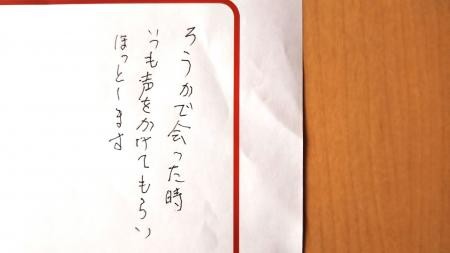 ろうかで会った時
いつも声をかけてもらい
ほっとします